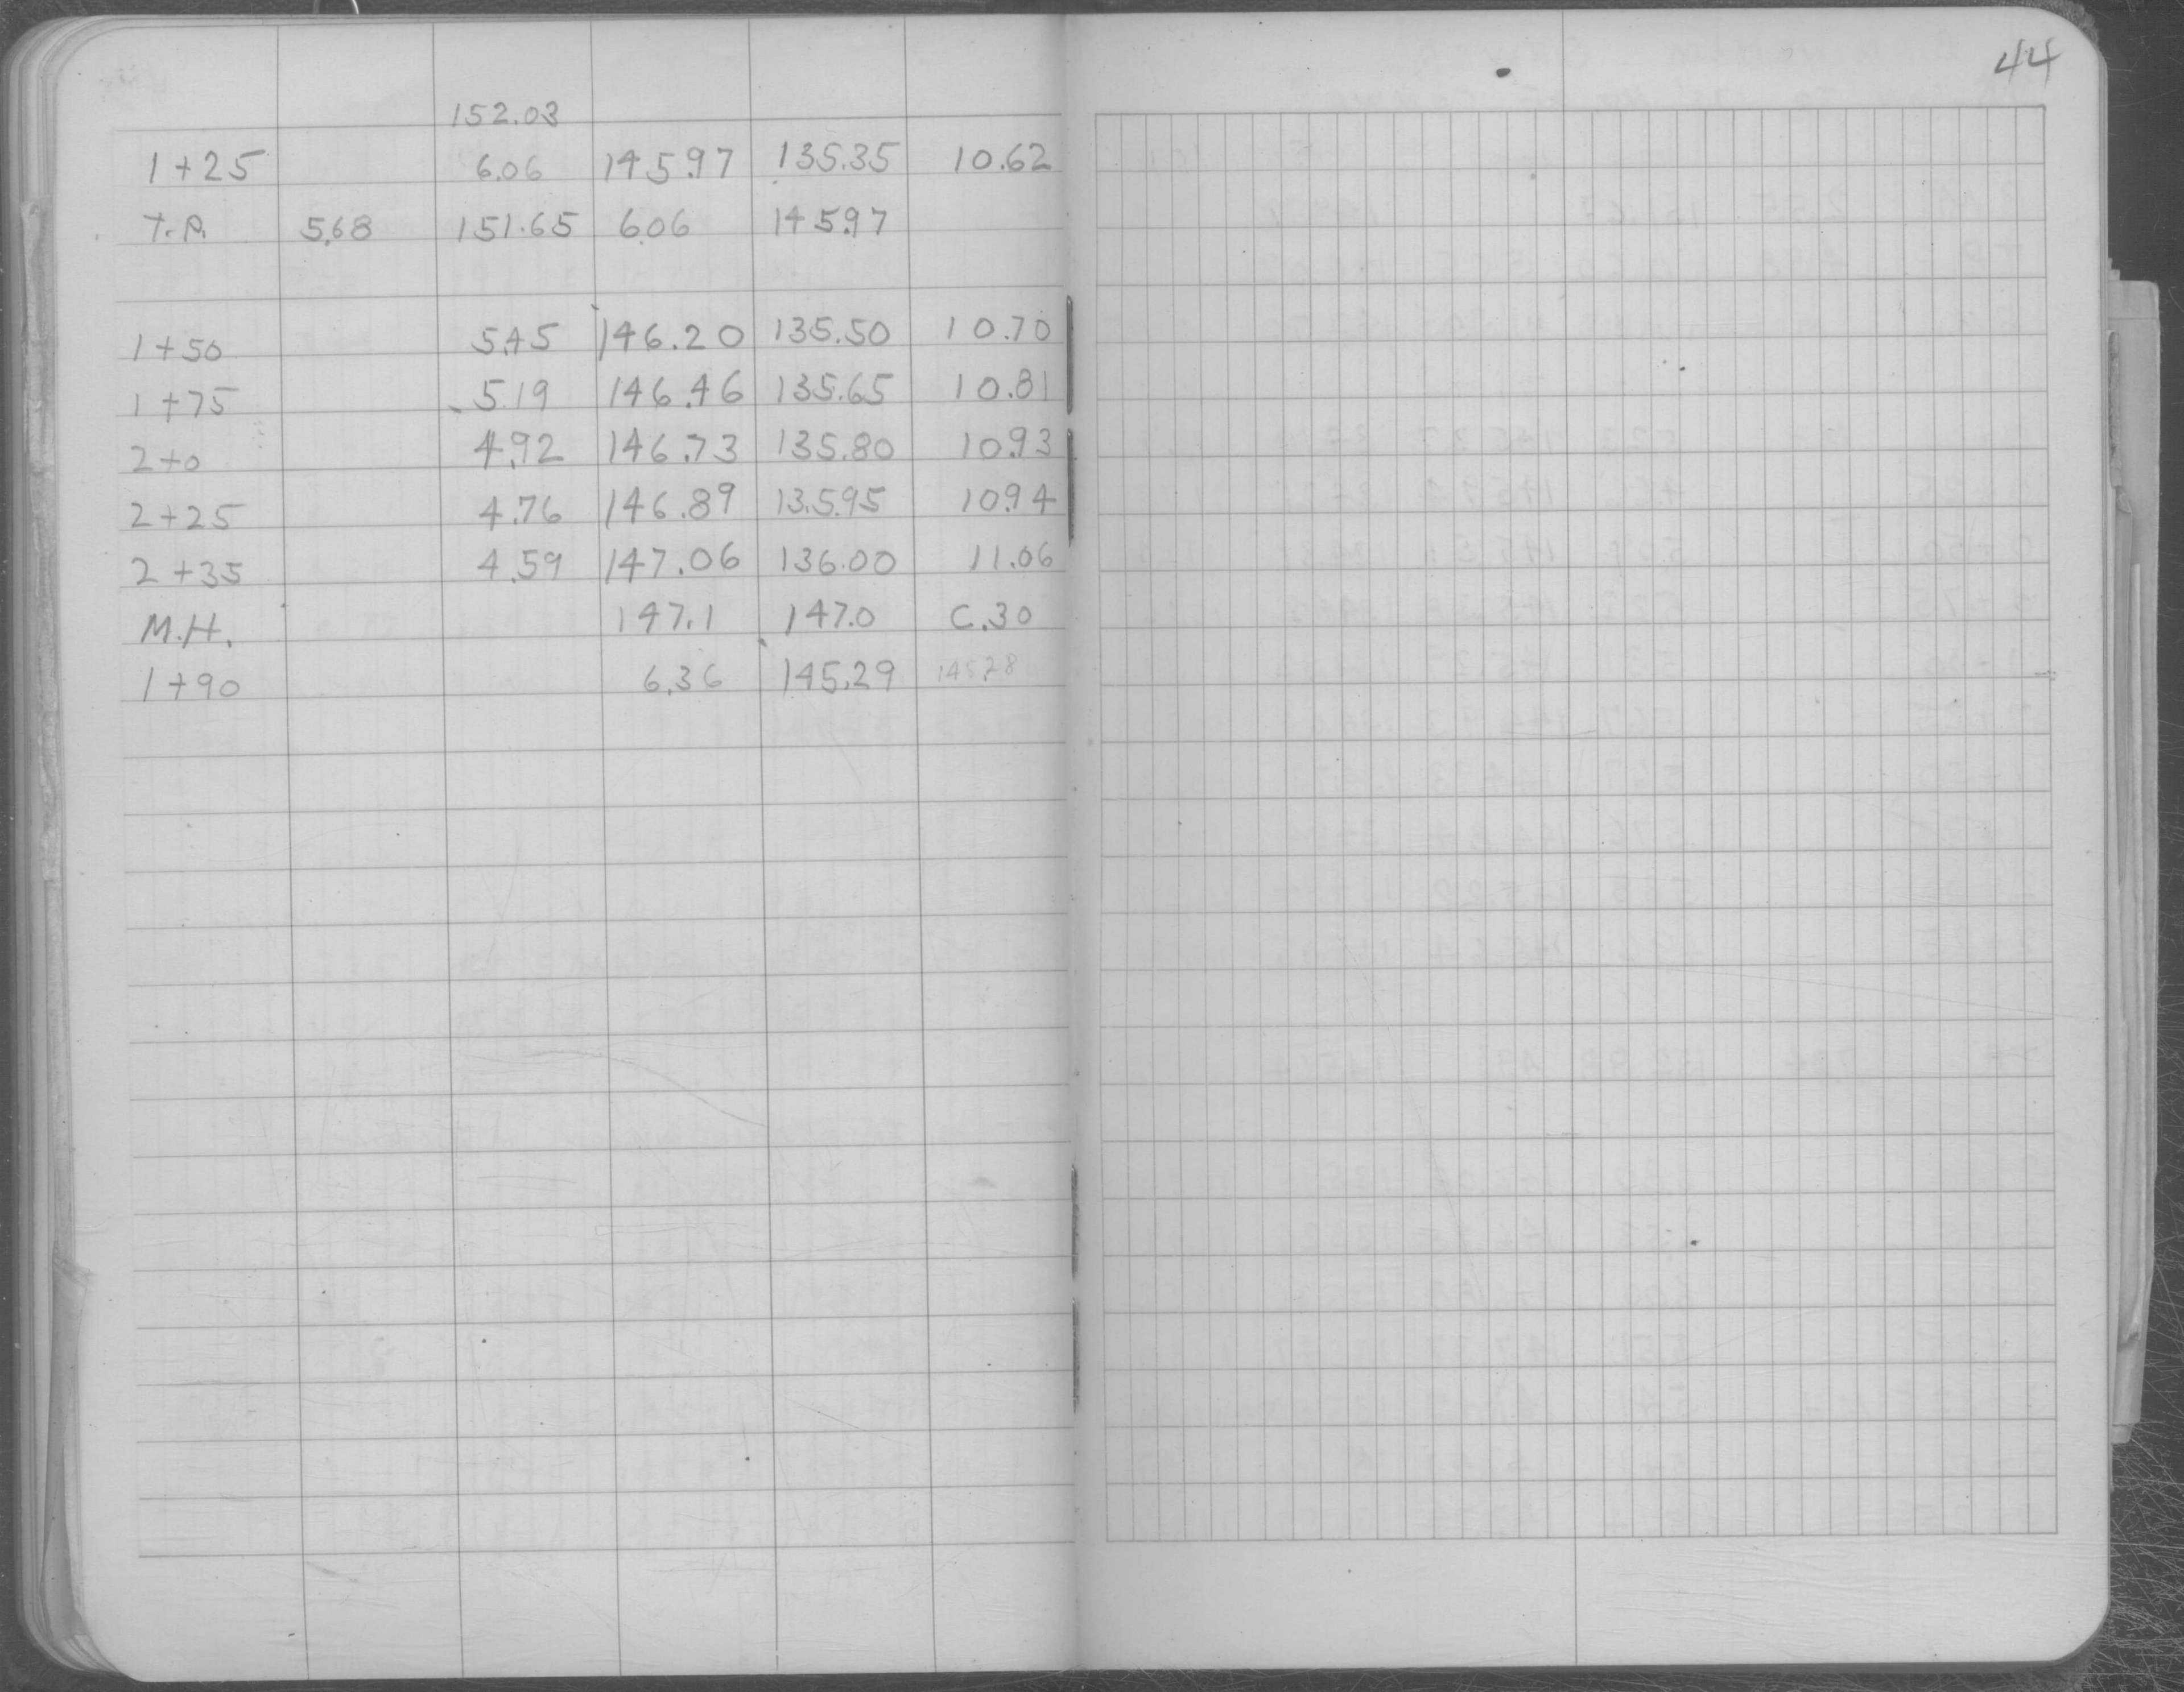 44
152.03
1+25 6.06 145.97 135.35 10.62
T.P. 5.68 151.65 6.06 145.97
1+50 5.45 146.20 135.50 10.70
1+75 5.19 146.46 135.65 10.81
2+0 4.92 146.73 135.80 10.93
2+25 4.76 146.89 135.95 10.94
2+35 4.59 147.06 136.00 11.06
M.H. 147.1 147.0 C.30
1+90 6.36 145.29 145.28